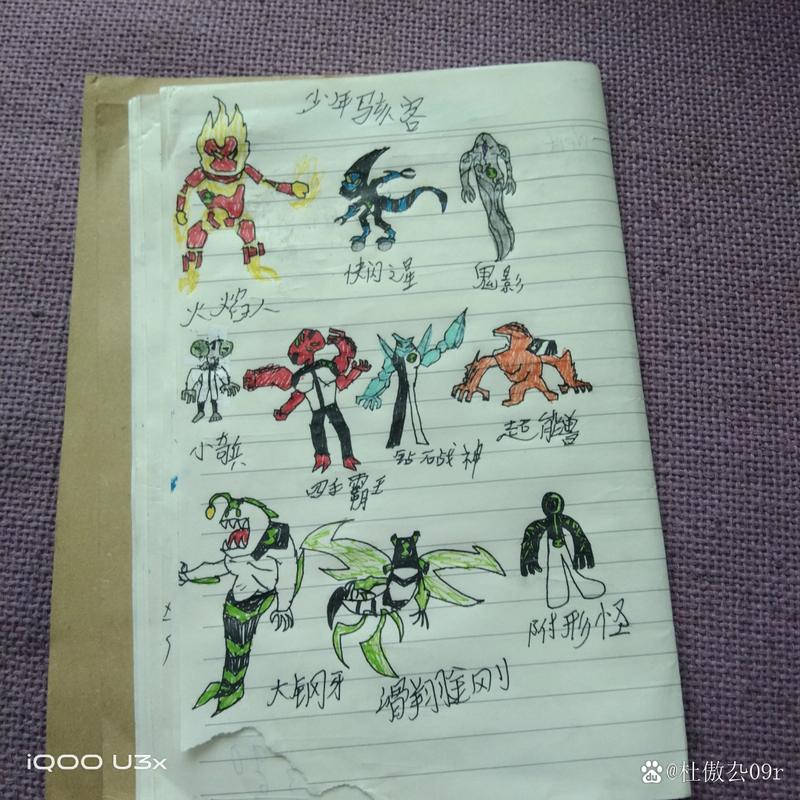 少年骇客
火焰人
快闪之星
鬼影
小奇兵
四手霸王
钻石战神
超能兽
大钢牙
滑翔金刚
附形怪
iQOO U3x
@杜傲厹09r